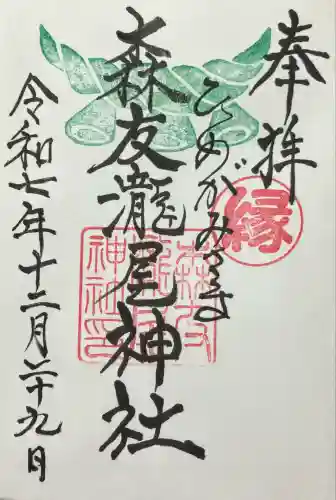 奉拝
ひめがみさま
縁
森友瀧尾神社
森友瀧尾神社印
令和七年十二月二十九日